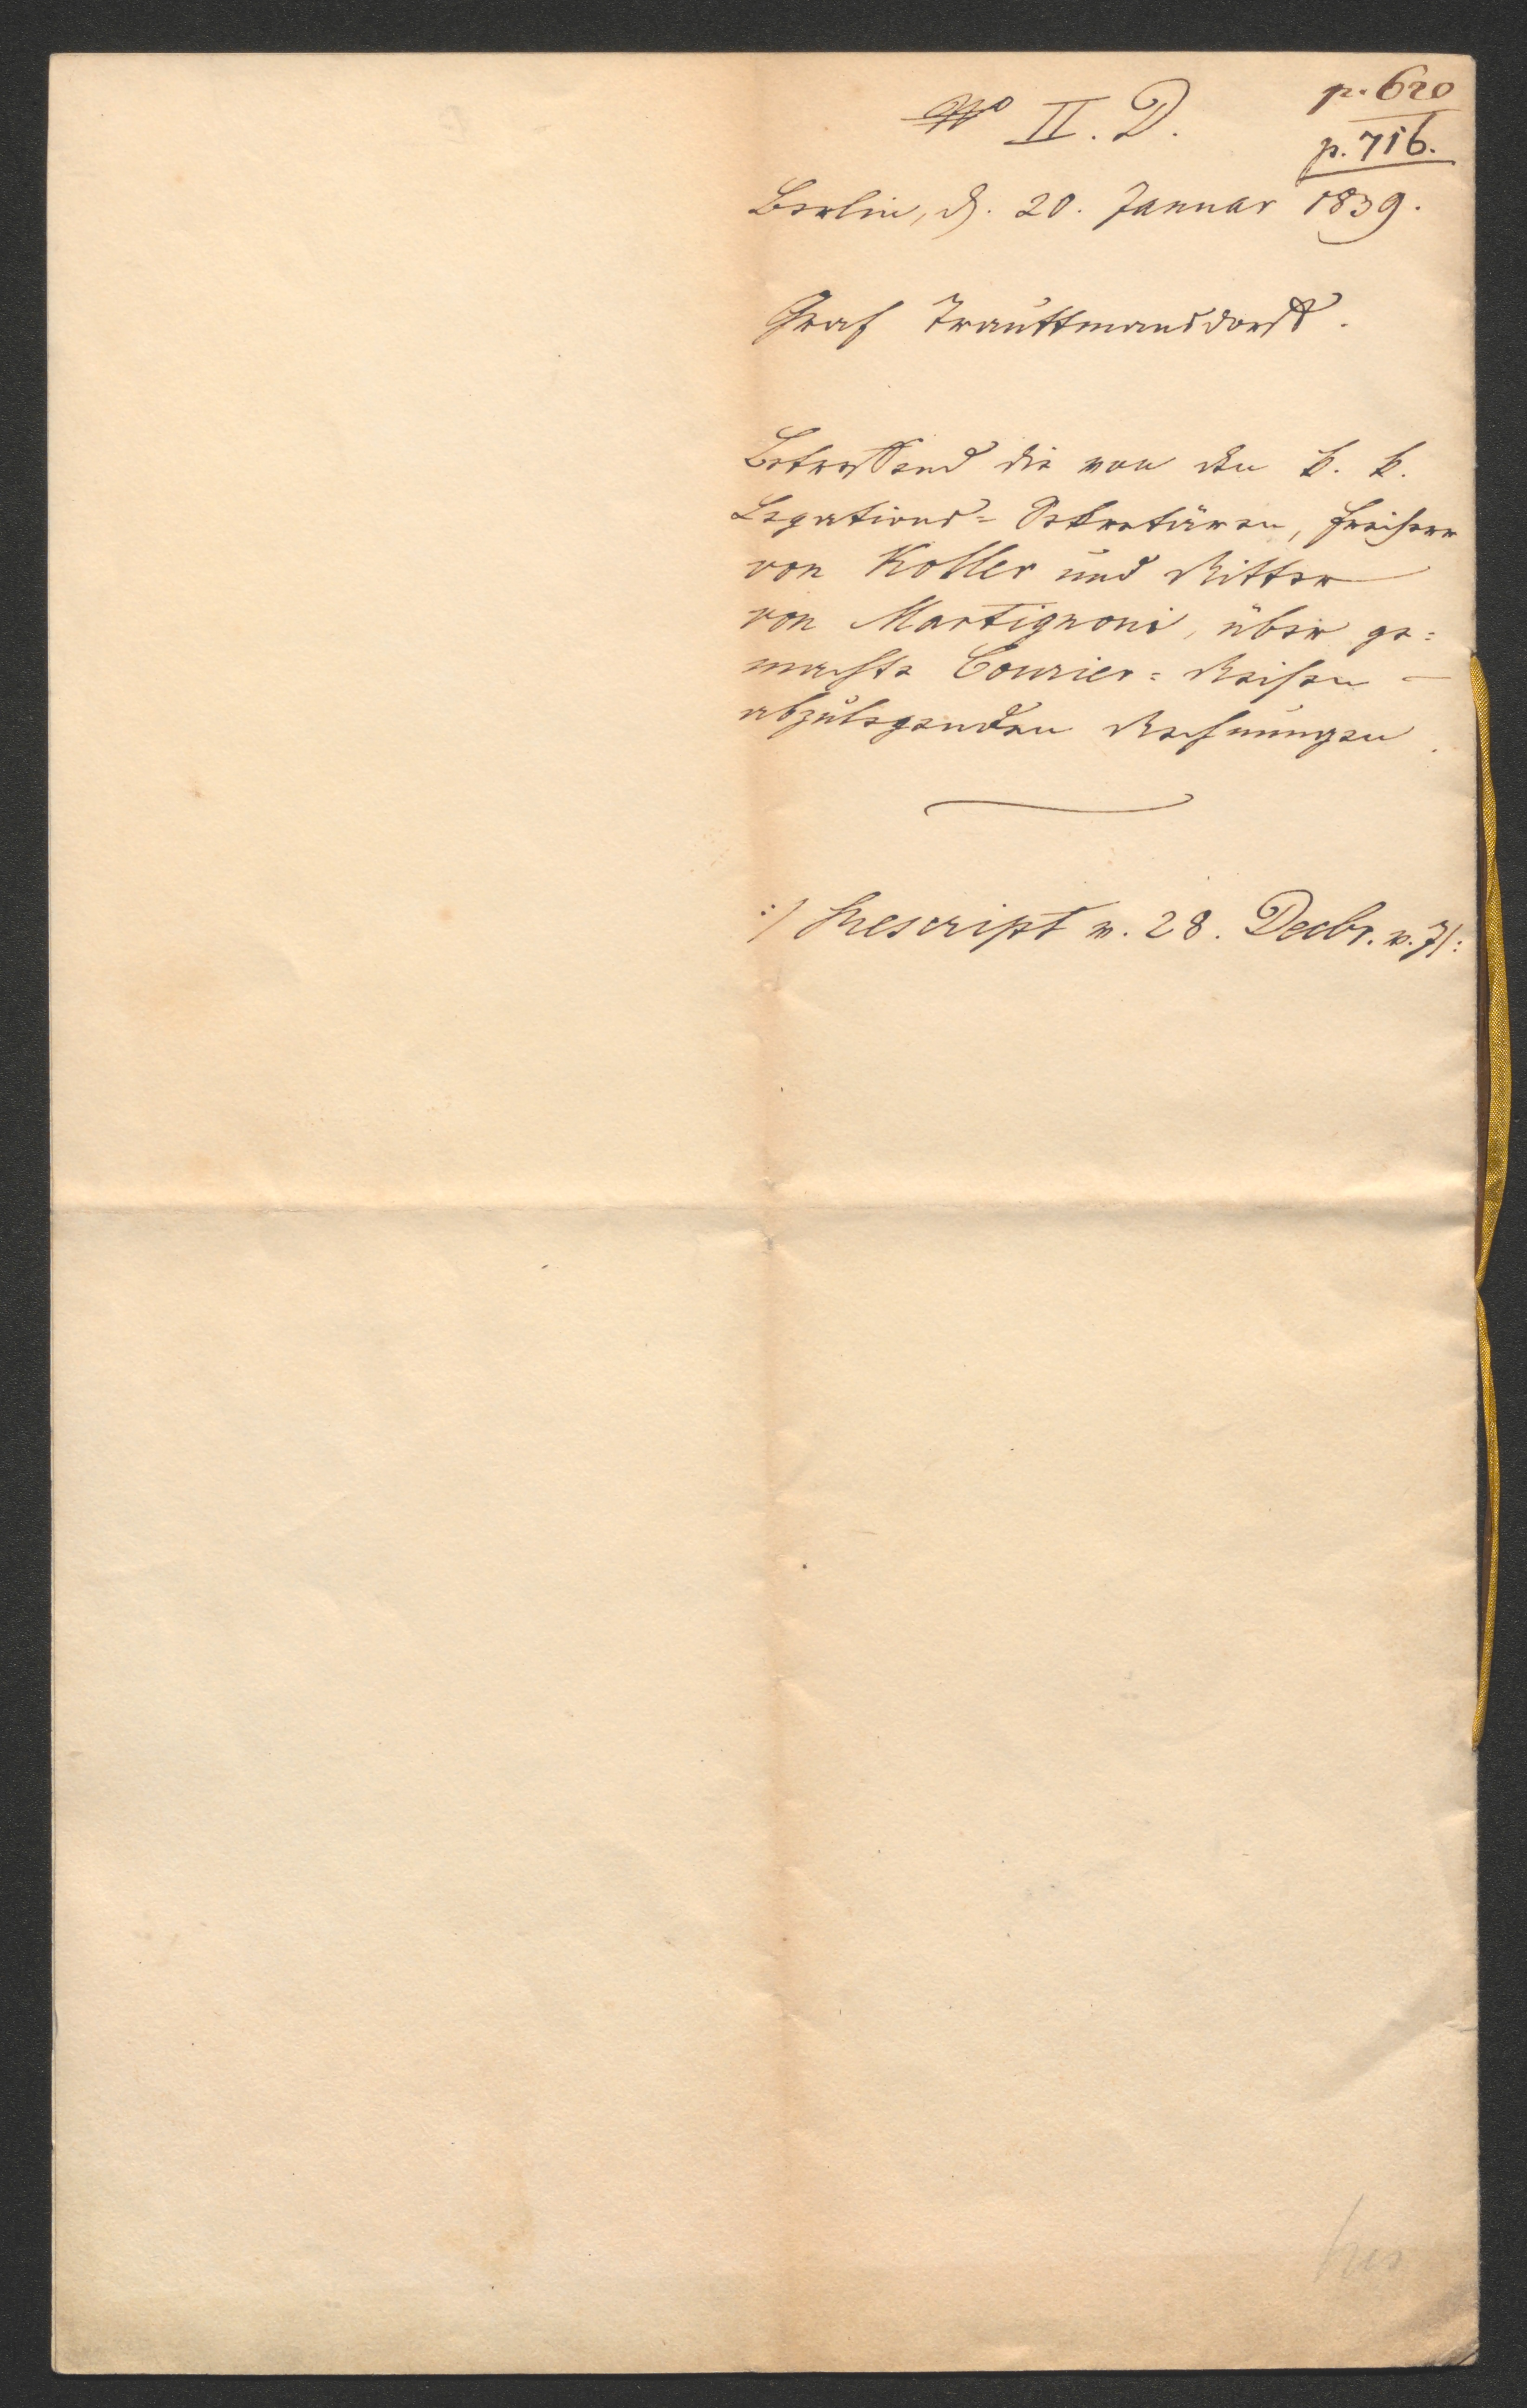 No II. D.
p. 620
p. 716.
Berlin, d. 20. Januar 1839.
Graf Trauttmansdorff.
Betreffend die von den k. k.
Legations= Sekretären, Freiherr
von Koller und Ritter
von Martignoni, über ge=
machte Courier= Reisen –
abzulegenden Rechnungen.
:/ Rescript v. 28. Decbr. v. J /: